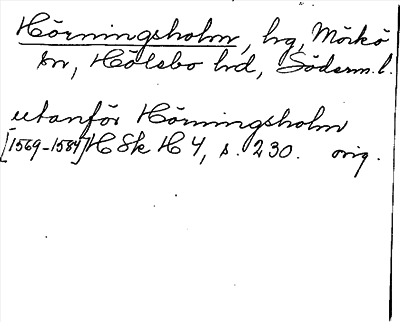 Hörningsholm, hg, Mörkö
sn, Hölebo hd, Söderm.l.
utanför Hörningsholm
[1569-1584] H Sk H 4, s. 230. orig.